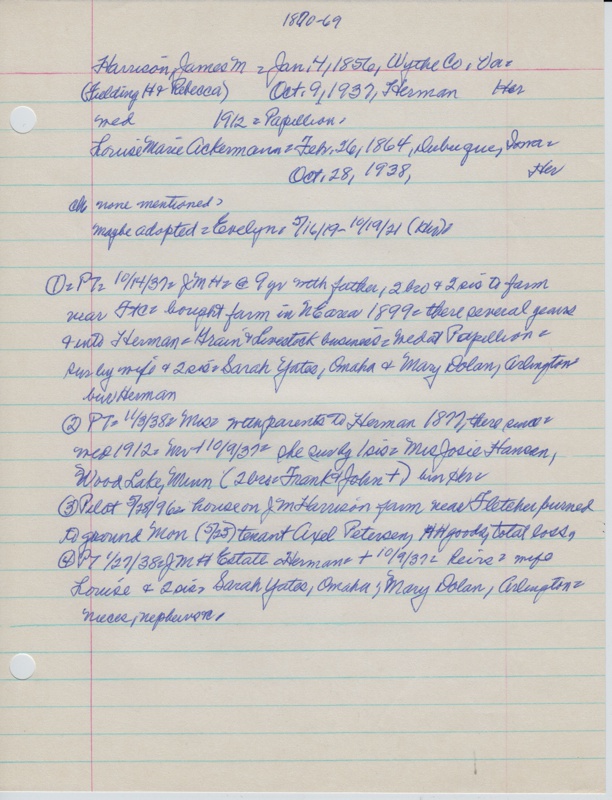 1870-69
Harrison, James M = Jan. 4, 1856, Wythe Co, Va =
(Fielding H & Rebecca) Oct. 9, 1937, Herman Her
med 1912 = Papillion,
Louise Marie Ackermann = Febr. 26, 1864, Dubuque, Iowa =
Oct. 28, 1938, Her
ch none mentioned =
maybe adopted = Evelyn, 5/16/19 - 10/19/21 (Her)
① = PT = 10/14/37 = JMH = @ 9 yr with father, 2 bro & 2 sis to farm
near FtC = bought farm in area 1899 = there several years
& into Herman = Grain & Livestock business = med at Papillion =
surv by wife & 2 sis = Sarah Yates, Omaha & Mary Dolan, Arlington =
bur Herman
② PT = 11/3/38 = Mrs = with parents to Herman 1877, there since =
med 1912 = Mr + 10/9/37 = she surv by 1 sis = Mrs Josie Hansen,
Wood Lake, Minn (2 bro = Frank & John +) bur Her =
③ Pilot 5/28/96 = house on J M Harrison farm near Fletcher burned
to ground Mon (5/25) tenant Axel Petersen, HH goods, total loss,
④ PT 1/27/38 = JMH Estate = Herman = + 10/9/37 = heirs = wife
Louise & 2 sis = Sarah Yates, Omaha, Mary Dolan, Arlington =
nieces, nephews,